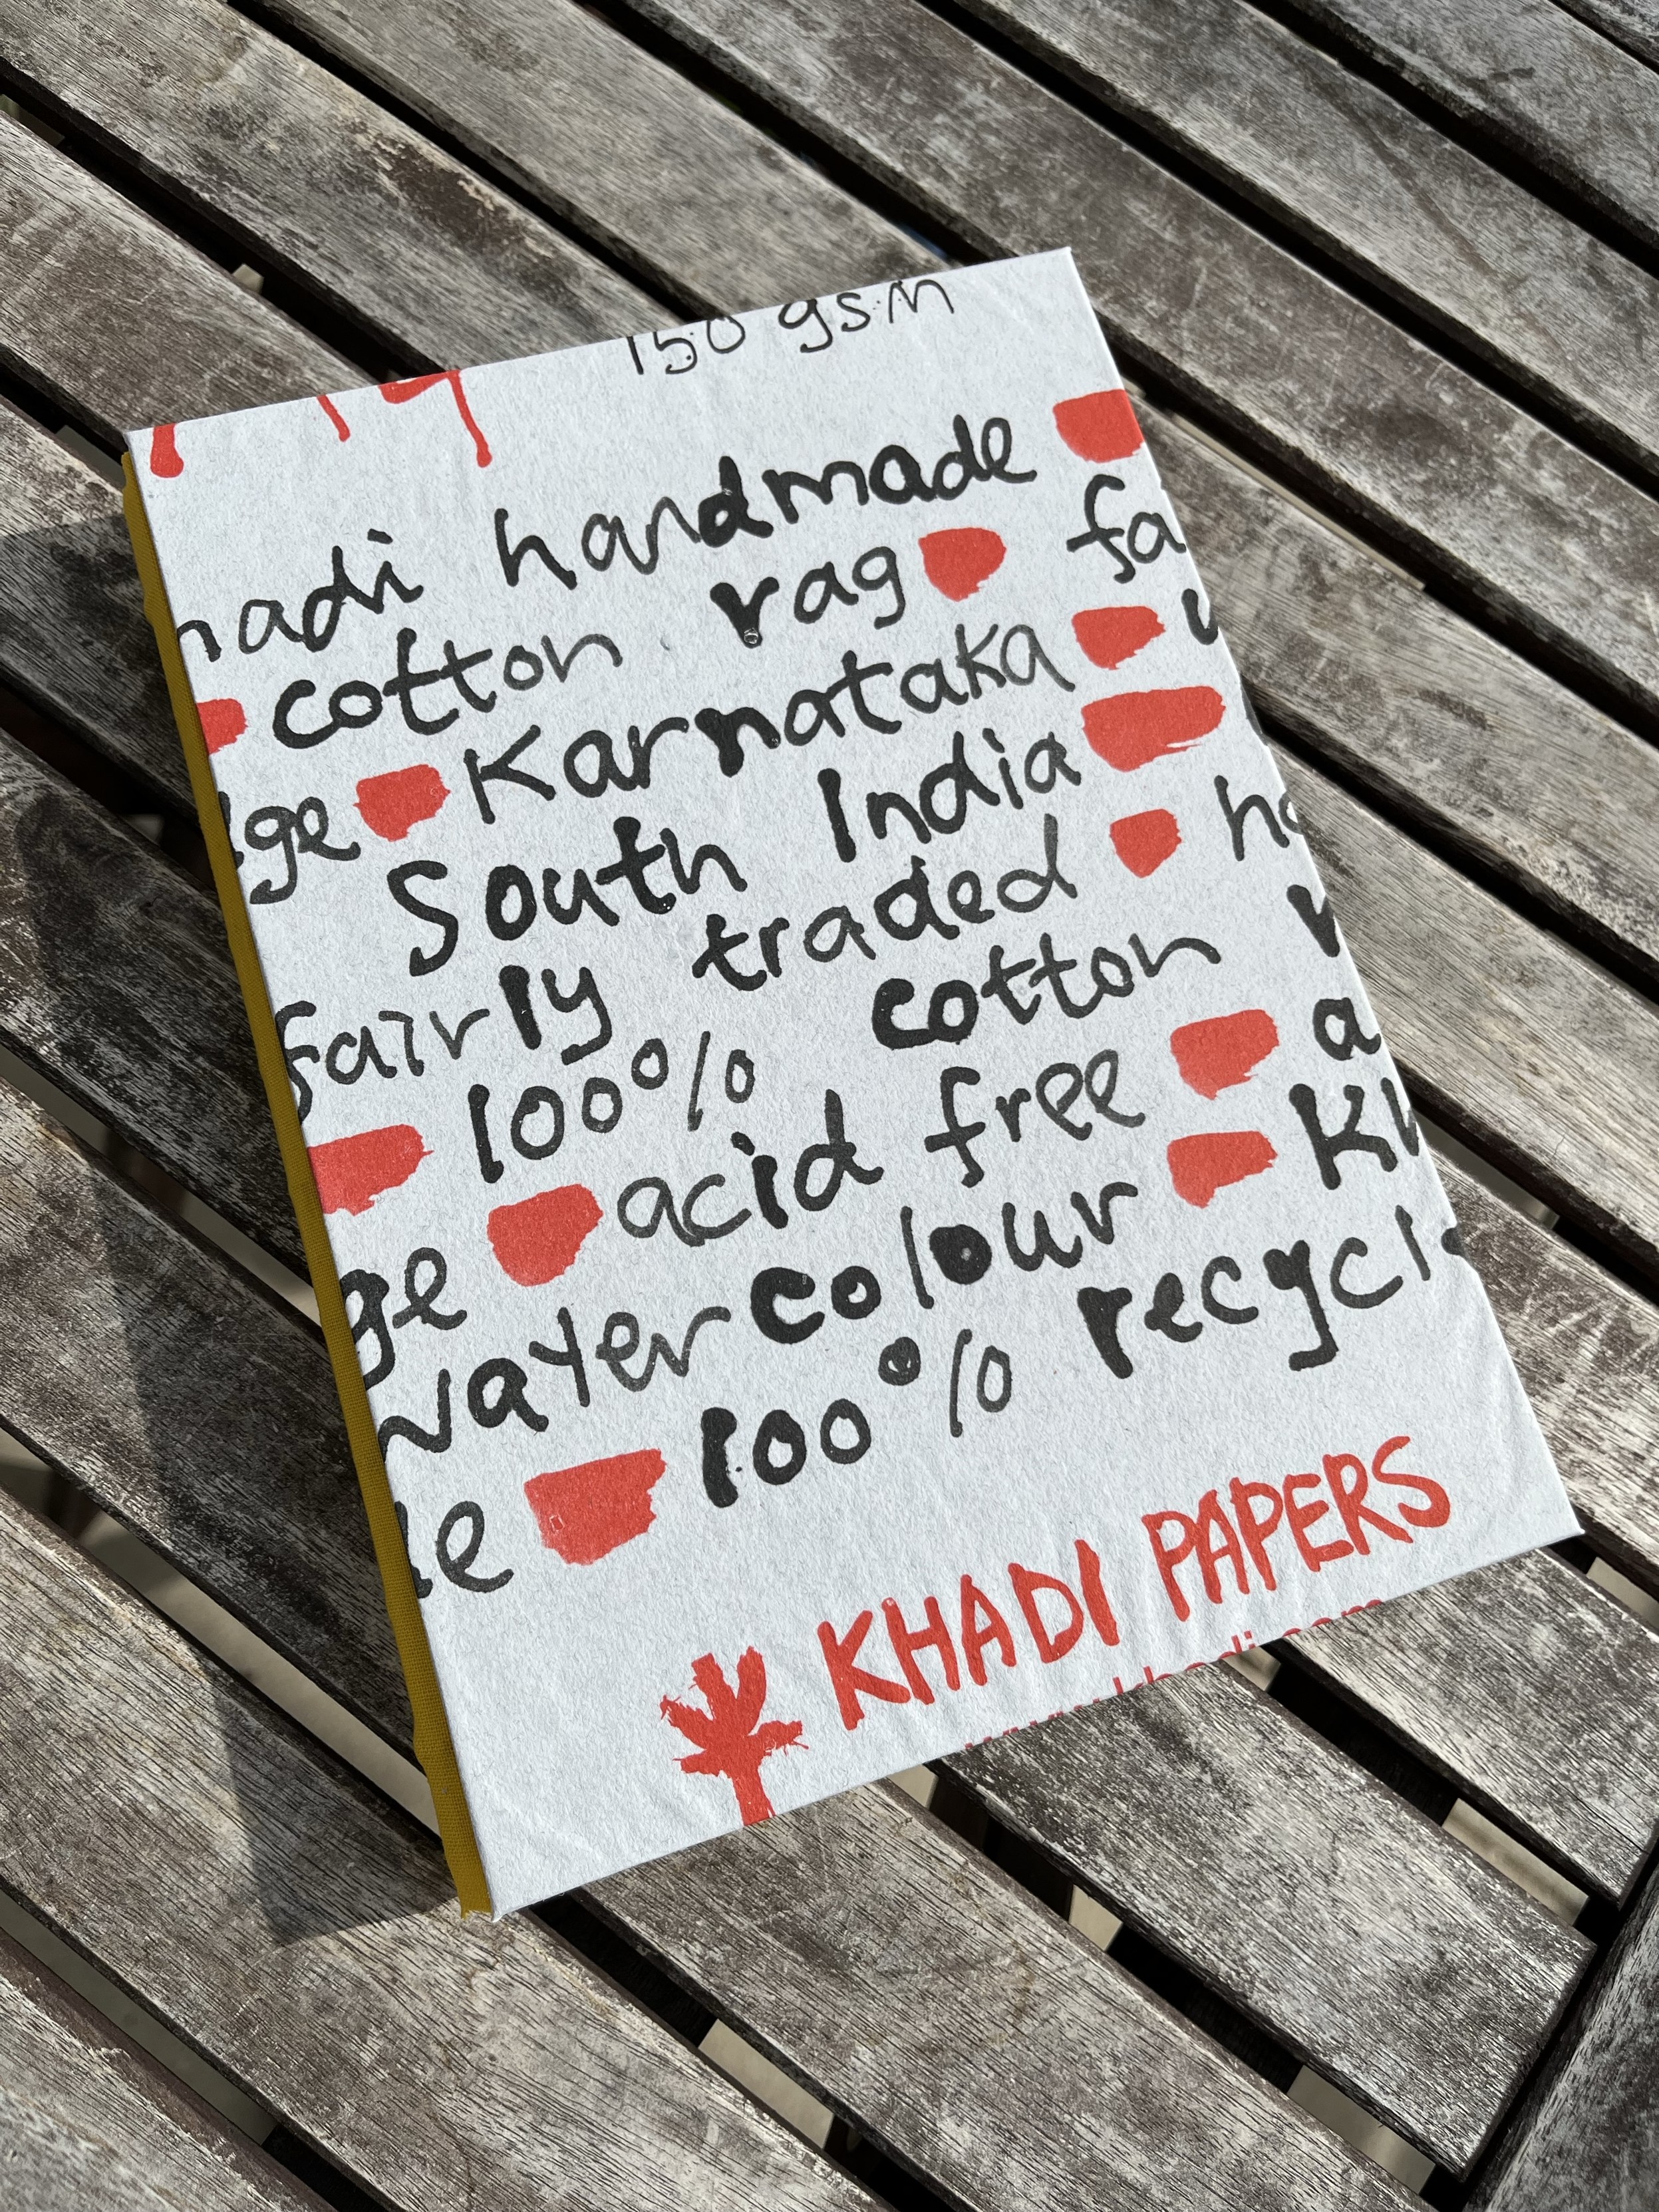 150 gsm
hadi handmade
cotton rag fa
ge Karnataka
South India
fairly traded ha
100% cotton
ge acid free a
watercolour Kh
le 100% recycl
KHADI PAPERS